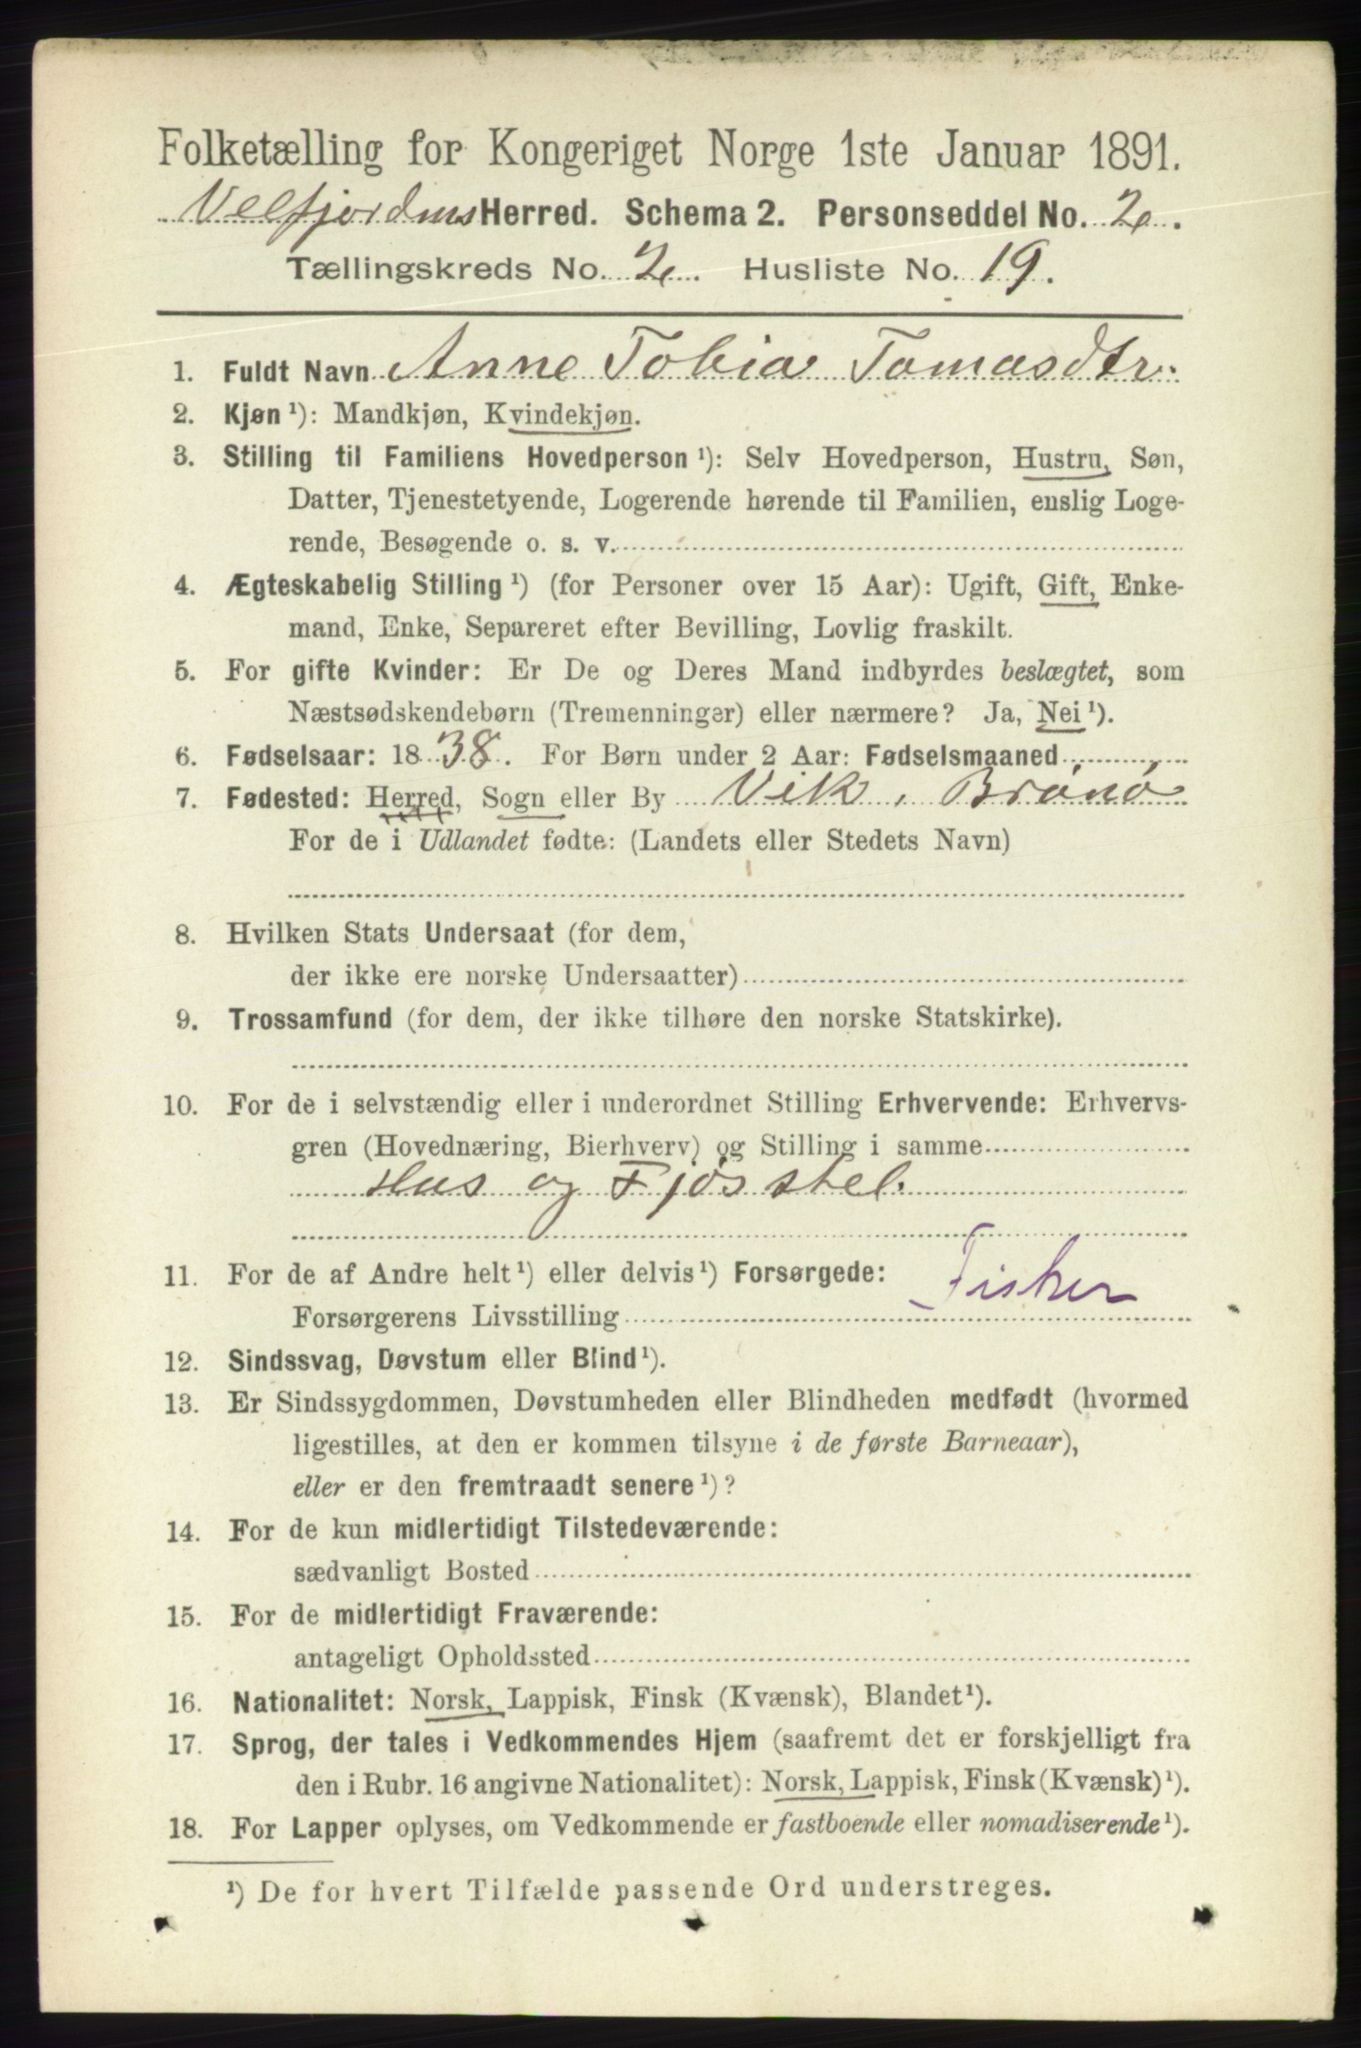 Folketælling for Kongeriget Norge 1ste Januar 1891.
Velfjordens Herred. Schema 2. Personseddel No. 2.
Tællingskreds No. 2. Husliste No. 19.
1. Fuldt Navn Anne Tobia Tomasdtr.
2. Kjøn ¹): Mandkjøn, Kvindekjøn.
3. Stilling til Familiens Hovedperson ¹): Selv Hovedperson, Hustru, Søn,
Datter, Tjenestetyende, Logerende hørende til Familien, enslig Loge-
rende, Besøgende o. s. v.
4. Ægteskabelig Stilling ¹) (for Personer over 15 Aar): Ugift, Gift, Enke-
mand, Enke, Separeret efter Bevilling, Lovlig fraskilt.
5. For gifte Kvinder: Er De og Deres Mand indbyrdes beslægtet, som
Næstsødskendebørn (Tremenninger) eller nærmere? Ja, Nei ¹).
6. Fødselsaar: 1838. For Børn under 2 Aar: Fødselsmaaned
7. Fødested: Herred, Sogn eller By Vik, Brønø
For de i Udlandet fødte: (Landets eller Stedets Navn)
8. Hvilken Stats Undersaat (for dem,
der ikke ere norske Undersaatter)
9. Trossamfund (for dem, der ikke tilhøre den norske Statskirke).
10. For de i selvstændig eller i underordnet Stilling Erhvervende: Erhvervs-
gren (Hovednæring, Bierhverv) og Stilling i samme
Hus og Fjøsstel.
11. For de af Andre helt ¹) eller delvis ¹) Forsørgede:
Forsørgerens Livsstilling Fisker
12. Sindssvag, Døvstum eller Blind ¹).
13. Er Sindssygdommen, Døvstumheden eller Blindheden medfødt (hvormed
ligestilles, at den er kommen tilsyne i de første Barneaar),
eller er den fremtraadt senere ¹)?
14. For de kun midlertidigt Tilstedeværende:
sædvanligt Bosted
15. For de midlertidigt Fraværende:
antageligt Opholdssted
16. Nationalitet: Norsk, Lappisk, Finsk (Kvænsk), Blandet ¹).
17. Sprog, der tales i Vedkommendes Hjem (saafremt det er forskjelligt fra
den i Rubr. 16 angivne Nationalitet): Norsk, Lappisk, Finsk (Kvænsk) ¹).
18. For Lapper oplyses, om Vedkommende er fastboende eller nomadiserende ¹).
¹) De for hvert Tilfælde passende Ord understreges.